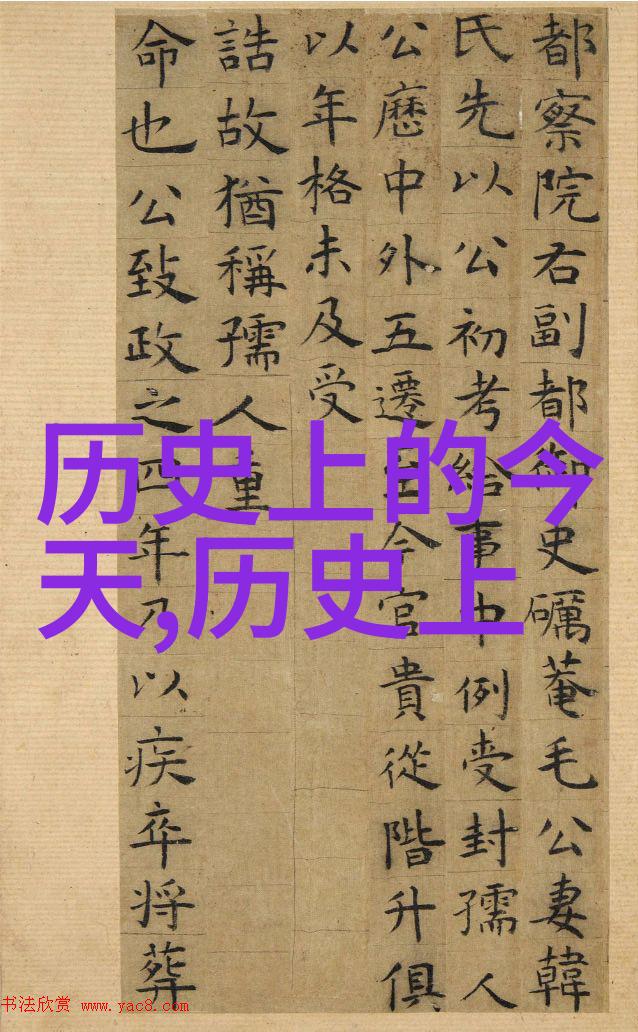 都察院右副都御史礪菴毛公妻韓
氏先以公初考給事中例受封孺人
公歷中外五遷至今官貴從階升俱
以年格未及受
誥故猶稱孺人重
命也公致政之四年乃以疾卒将葬
历史上的今
天,历史上
书法欣赏 www.yac8.com